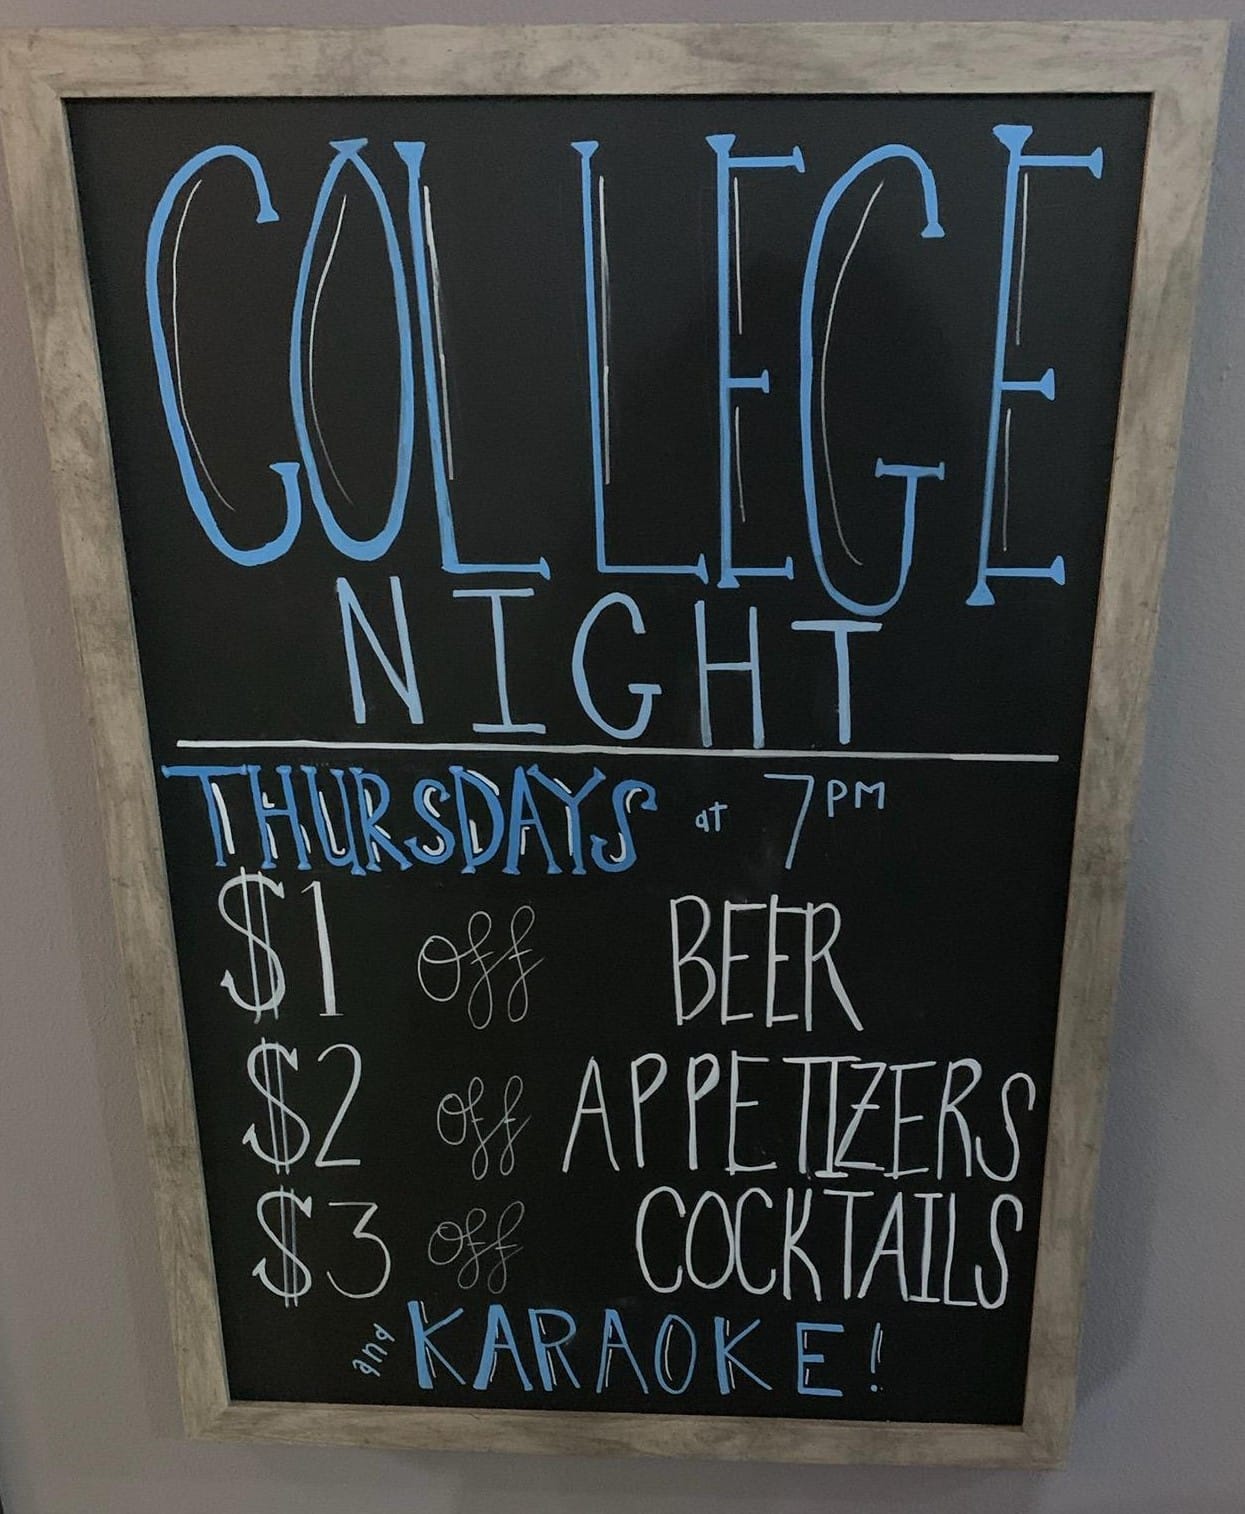 COLLEGE
NIGHT
THURSDAYS at 7PM
$1 off BEER
$2 off APPETIZERS
$3 off COCKTAILS
and KARAOKE!